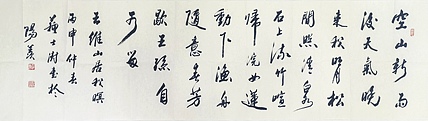 空山新雨
後天氣晚
来秋明月松
間照清泉
石上流竹喧
歸浣女蓮
動下漁舟
隨意春芳
歇王孫自
可留
王維山居秋暝
丙申仲春
士澍書於
陽羨